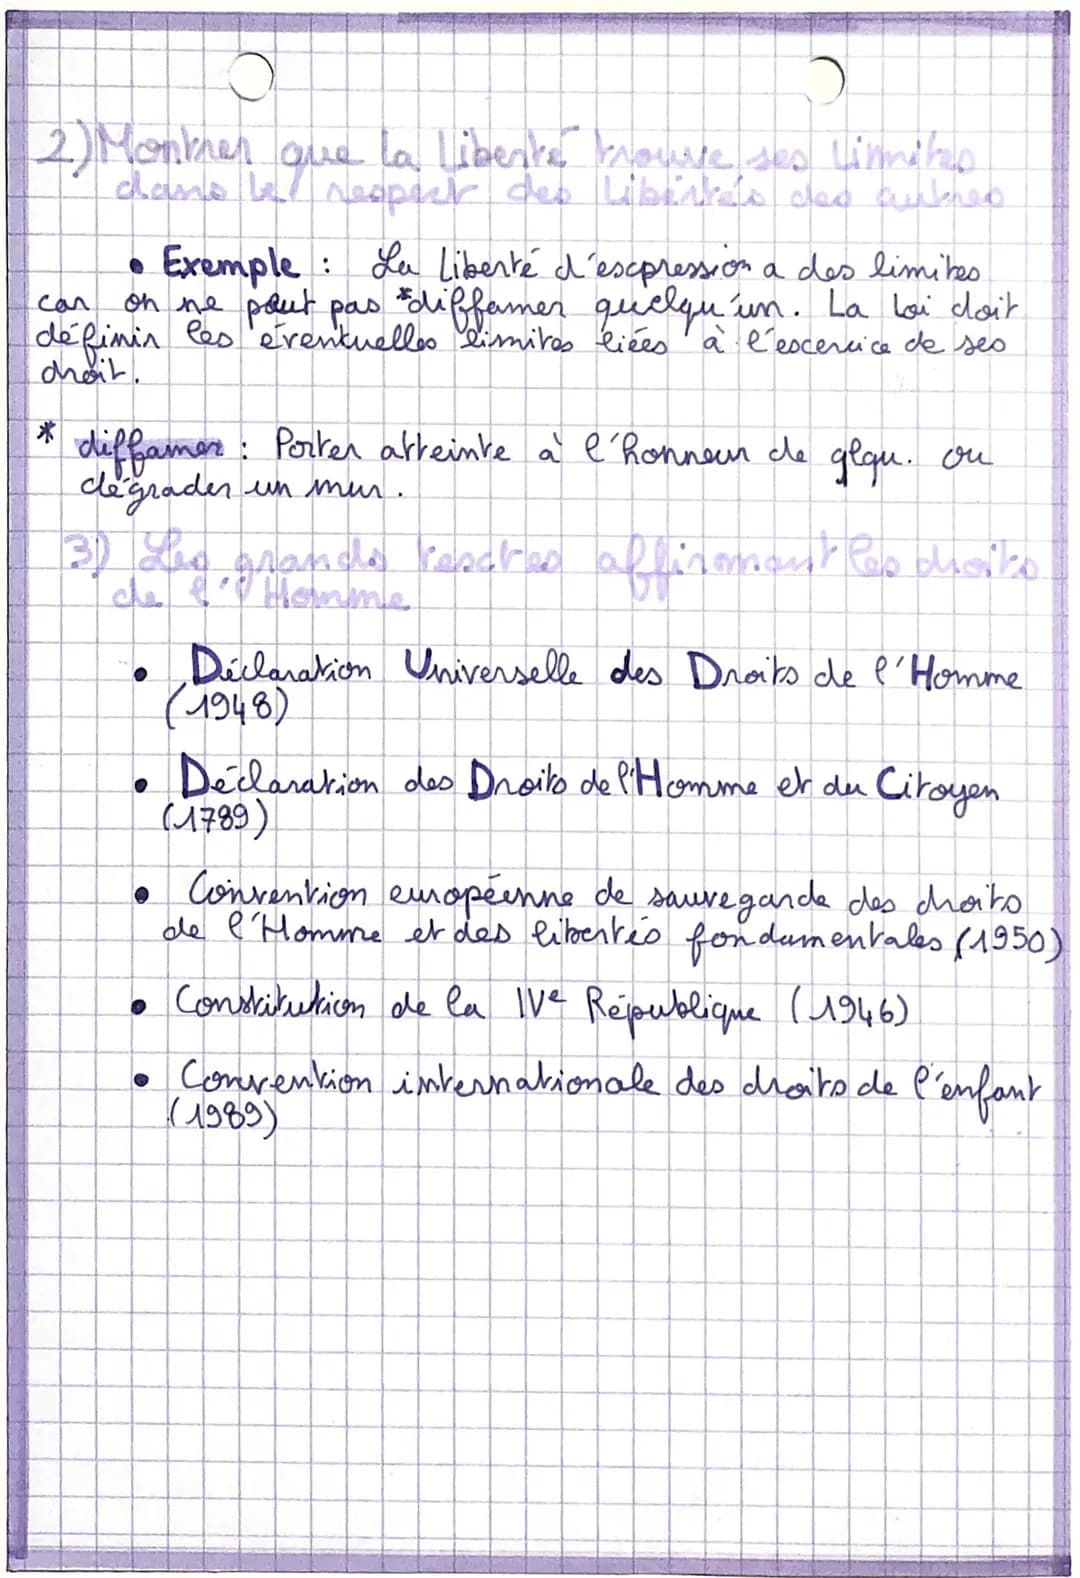 2) Montrer que la Liberté trouve ses Limites
dans le respect des Libertés des autres
• Exemple : La Liberté d'expression a des limites
car on ne peut pas *diffamer quelqu'un. La Loi doit
définir les éventuelles limites liées à l'exercice de ses
droit.
* diffamer : Porter atteinte à l'honneur de qlqu. ou
dégrader un mur.
3) Les grands textes affirmant les droits
de l'Homme
• Déclaration Universelle des Droits de l'Homme
(1948)
• Déclaration des Droits de l'Homme et du Citoyen
(1789)
• Convention européenne de sauvegarde des droits
de l'Homme et des libertés fondamentales (1950)
• Constitution de la IVe République (1946)
• Convention internationale des droits de l'enfant
(1989)